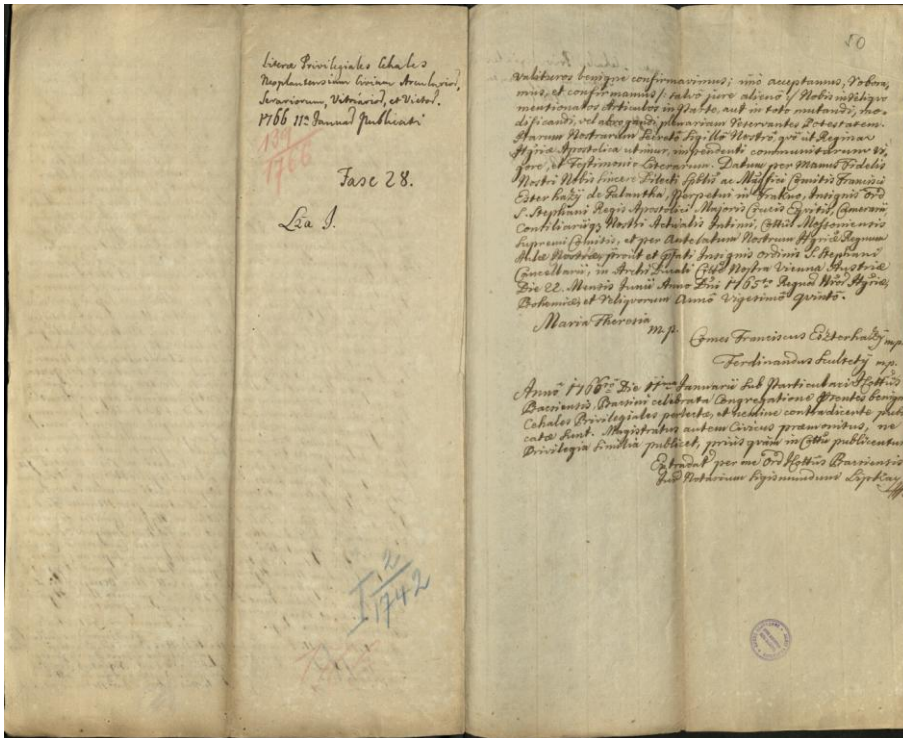 Literae Privilegiales Cehales
Neoplantensium Civium Arcularior,
Serariorum, Vitriarior, et Victor.
1766 11a Januar Publicati
139
1766
Fasc 28.
Lra I.
2
I 1742
50
valituros benigne confirmavimus; imo acceptamus, robora,
mus, et confirmamus /: salvo jure alieno :/ Nobis in reliquo
mentionatos Articulos in parte, aut in toto mutandi, mo,
dificandi, vel abrogandi, plenariam reservantes Potestatem.
Harum Nostrarum Secreto Sigillo Nostro, quo ut Regina
Hgriae Apostolica utimur, impendenti communitarum vi,
gore, et Testimonio Literarum. Datum per Manus Fidelis
Nostri Nobis sincere Dilecti Spblis ac Magfici Comitis Francisci
Eszterhazÿ de Galantha, Perpetui in Frakno, Insignis Ord
S. Stephani Regis Apostolici Majoris Crucis Equitis, Camerarii,
Consiliariiq Nostri Actualis Intimi, Cottus Mossoniensis
Supremi Comitis, et per Antelatum Nostrum Hgriae Regnum
Aulae Nostrae, prout et Insignis Ordinis S. Stephani
Cancellarii, in Archi Ducali Citte Nostra Vienna Austriae
Die 22. Mensis Junii Anno Dni 1765to Regnor Nror Hgriae,
Bohemiae, et reliquorum Anno Vigesimo quinto.
Maria Theresia
m.p.
Comes Franciscus Eszterhazÿ m.p.
Ferdinandus Skultetÿ m.p.
Anno 1766to Die 11ma Januarii sub Particulari I Cottus
Bacsiensis, Bacsini celebrata Congregatione Psentes benignae
Cehales Privilegiales perlectae, et nemine contradicente publi
catae sunt. Magistratus autem Civicus praemonitus, ne
Privilegia similia publicet, prius quam in Cottu publicentur
Extradat per me Ord I Cottus Bacsiensis
Jur Notarium Sigismundum Liptkay